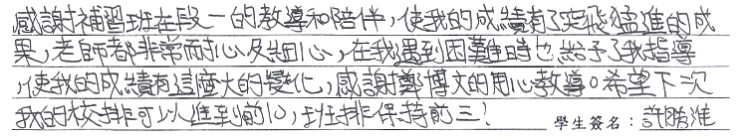 感謝補習班在段一的教導和陪伴,使我的成績有了突飛猛進的成
果,老師都非常耐心及細心,在我遇到困難時也給予了我指導
,使我的成績有這麼大的變化,感謝鄭博文的用心教導。希望下次
我的校排可以進到前10,班排保持前三!
學生簽名:許勝淮